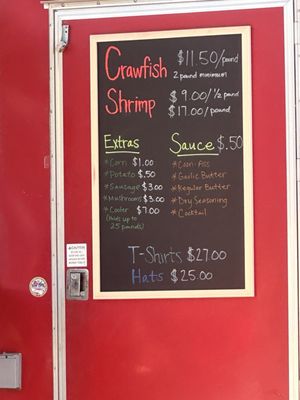 Crawfish $11.50/pound
2 pound minimum
Shrimp $9.00/½ pound
$17.00/pound
Extras
*Corn $1.00
*Potato $.50
*Sausage $3.00
*Mushrooms $3.00
*Cooler $7.00
(holds up to
25 pounds)
Sauce $.50
*Garlic Butter
*Regular Butter
*Dry Seasoning
*Cocktail
T-Shirts $27.00
Hats $25.00